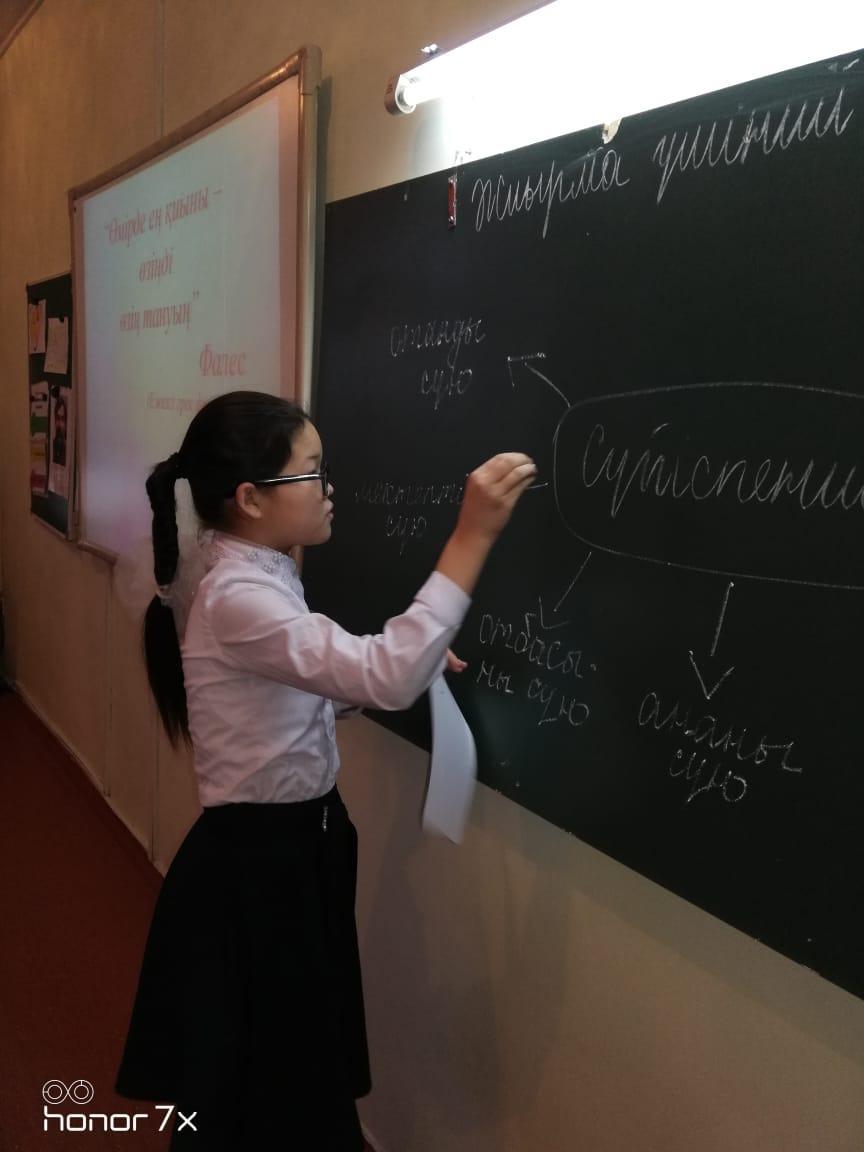 "Өмірде ең қиыны –
өзіңді
өзің тануың"
Фалес
Жиырма үшінші
отанды
сүю
Сүйіспенши
мектепті
сүю
отбасы-
ны сүю
ананы
сүю
honor 7x